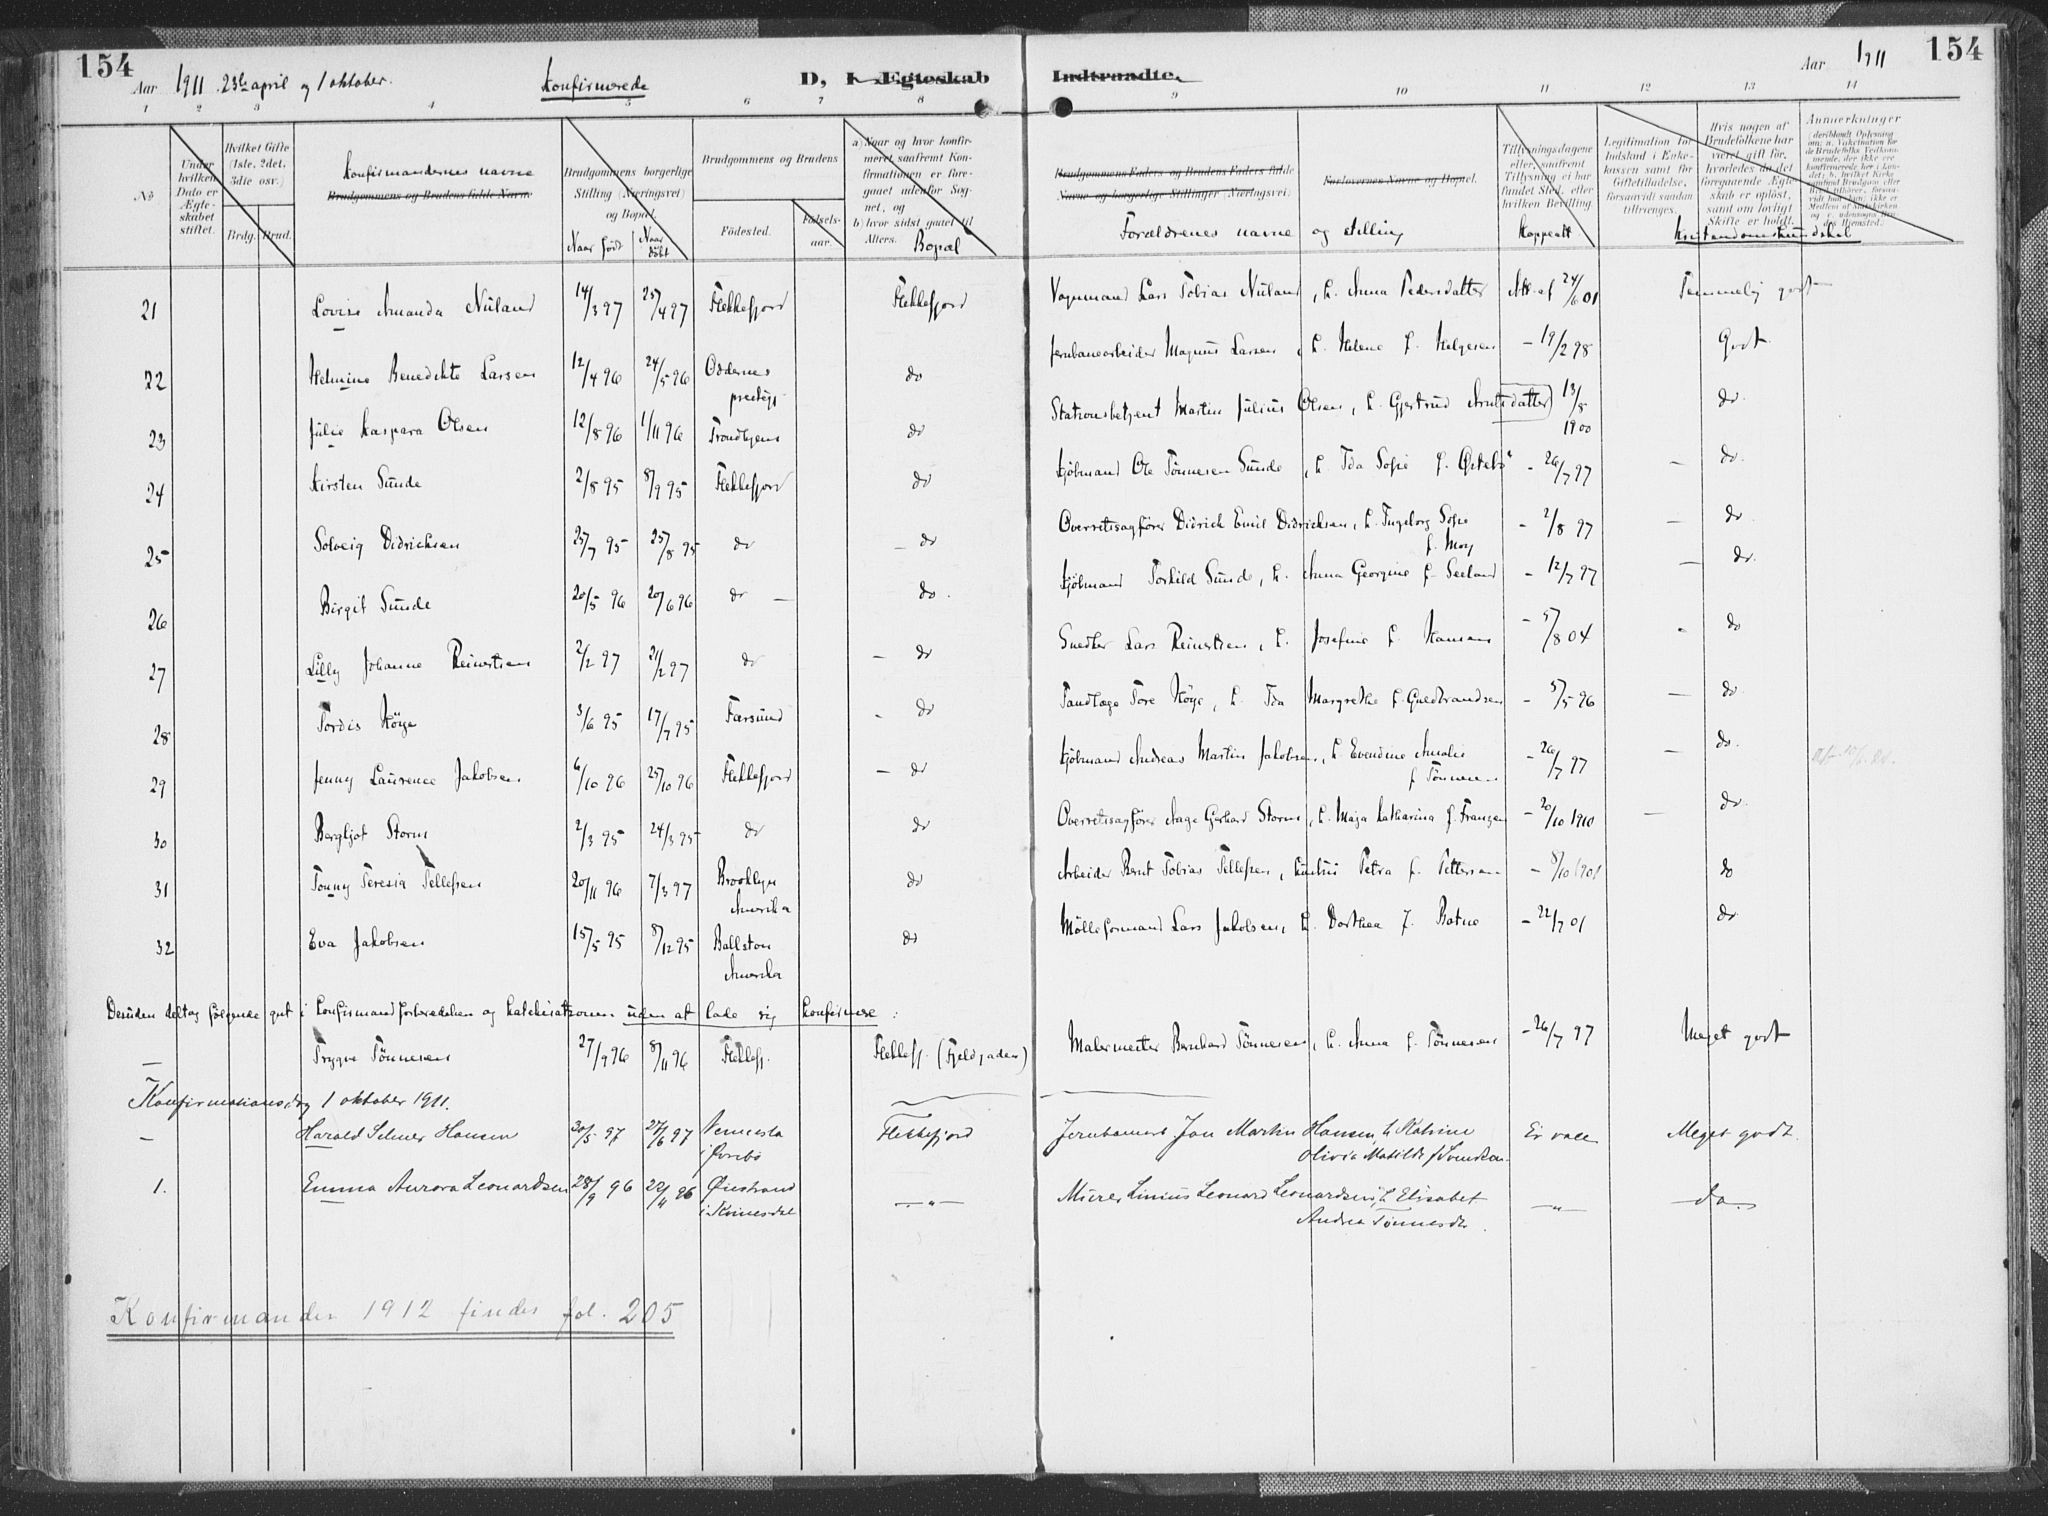 154
Aar 1911 23de april og 1 oktober. Konfirmerede D, I Ægteskab Indtraadte. Aar 1911 154
1 2 3 4 5 6 7 8 9 10 11 12 13 14
No
Under hvilken Dato er Ægteskabet stiftet.
Hvilket Gifte (1ste, 2det, 3die osv.)
Brdg. Brud.
Konfirmandernes navne
Brudgommens og Brudens fulde Navne
Brudgommens borgerlige Stilling (Næringsvei) og Bopæl.
Naar født Naar døbt
Brudgommens og Brudens
Fødested. Fødselsaar.
a) Naar og hvor konfirmeret saafremt Konfirmationen er foregaaet udenfor Sognet, og
b) hvor sidst gaaet til Alters.
Bopæl
Brudgommens Faders og Brudens Faders fulde Navne og borgerlige Stillinger (Næringsvei)
Forlovernes Navne og Bopæl.
Forældrenes navne og stilling
Tillysningsdagene eller, saafremt Tillysning ei har fundet Sted, efter hvilken Bevilling.
Koppeatt
Legitimation for Indskud i Enkekassen samt for Giftetilladelse, forsaavidt saadan tiltrænges.
Hvis nogen af Brudefolkene har været gift før, hvorledes da det foregaaende Ægteskab er opløst, samt om lovligt Skifte er holdt.
Kristendomskundskab
Anmerkninger
21 Lovise Amanda Nuland 14/3 97 25/4 97 Flekkefjord Flekkefjord Vognmand Lars Tobias Nuland, h. Anna Pedersdatter Att. af 24/6 01 Temmelig godt
22 Helmine Benedikte Larsen 12/4 96 24/5 96 Oddernes prestegj. do Jernbanearbeider Magnus Larsen, h. Helene f. Helgesen – 19/2 98 Godt
23 Julie Kaspara Olsen 12/8 96 1/11 96 Trondhjem do Stationsbetjent Martin Julius Olsen, h. Gjertrud Arntsdatter 13/8 1900 do
24 Kirsten Sunde 2/8 95 8/9 95 Flekkefjord do Kjøbmand Ole Tønnesen Sunde, h. Ida Sofie f. Ørtebø - 26/7 97 – do.
25 Solveig Didricksen 25/7 95 25/8 95 do – do Overretssagfører Didrick Emil Didricksen, h. Ingeborg Sofie f. Moy - 2/8 97 – do
26 Birgit Sunde 20/5 96 20/6 96 do – do. Kjøbmand Torkild Sunde, h. Anna Georgine f. Seeland - 12/7 97 – do.
27 Lilly Johanne Reinertsen 2/2 97 21/2 97 do – do Snedker Lars Reinertsen, h. Josefine f. Hansen - 5/8 04 - do
28 Tordis Høye 3/6 95 17/7 95 Farsund - do Tandlæge Tore Høye, h. Ida Margrethe f. Guldbrandsen - 5/5 96 – do
29 Jenny Laurence Jakobsen 6/10 96 25/10 96 Flekkefjord – do Kjøbmand Andreas Martin Jakobsen, h. Evendine Amalie f. Tønnesen - 26/7 97 – do.
30 Bergljot Storm 2/3 95 24/3 95 do do Overretssagfører Aage Gerhard Storm, h. Maja Katharina f. Franzen - 20/10 1910 – do
31 Tonny Teresia Tellefsen 20/11 96 7/3 97 Brooklyn Amerika do Arbeider Bernt Tobias Tellefsen, hustru Petra f. Pettersen – 8/10 1901 do
32 Eva Jakobsen 15/5 95 8/12 95 Ballston Amerika do Mølleformand Lars Jakobsen, h. Dorthea f. Batne – 22/7 01 do
Desuden deltog følgende gut i konfirmandforberedelsen og katekisationen uden at lade sig konfirmere:
– Trygve Tønnesen 27/9 96 8/11 96 Flekkefj. Flekkefj. (Fjeldgaden) Malermester Bernhard Tønnesen, h. Anna f. Tønnesen – 26/7 97 Meget godt
Konfirmationsdag 1 oktober 1911.
– Harald Selmer Hansen 30/5 97 27/6 97 Vennesla i Øvrebø Flekkefjord Jernbanearb. Jan Martin Hansen, h Katrine Olivia Matilde f Svendsen Er vacc Meget godt.
1. Emma Aurora Leonardsen 28/9 96 22/11 96 Øiestrand i Kvinesdal –„– Murer Linius Leonard Leonardsen, h Elisabet Andrea Tønnesdr. –„– – do. –
Konfirmander 1912 findes fol. 205